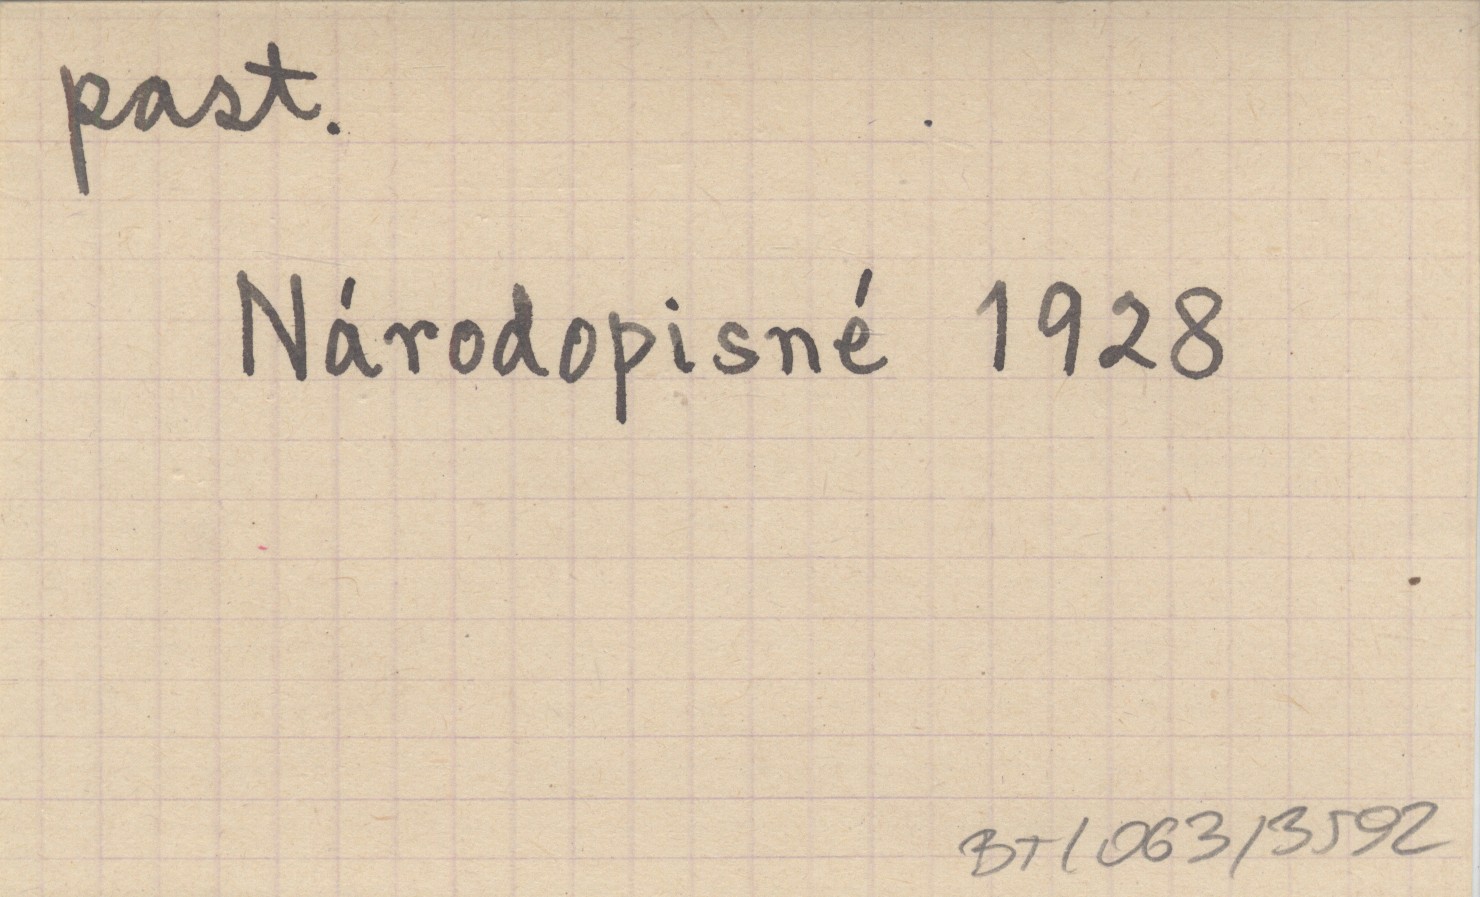 past.
Národopisné 1928
BT/063/3592